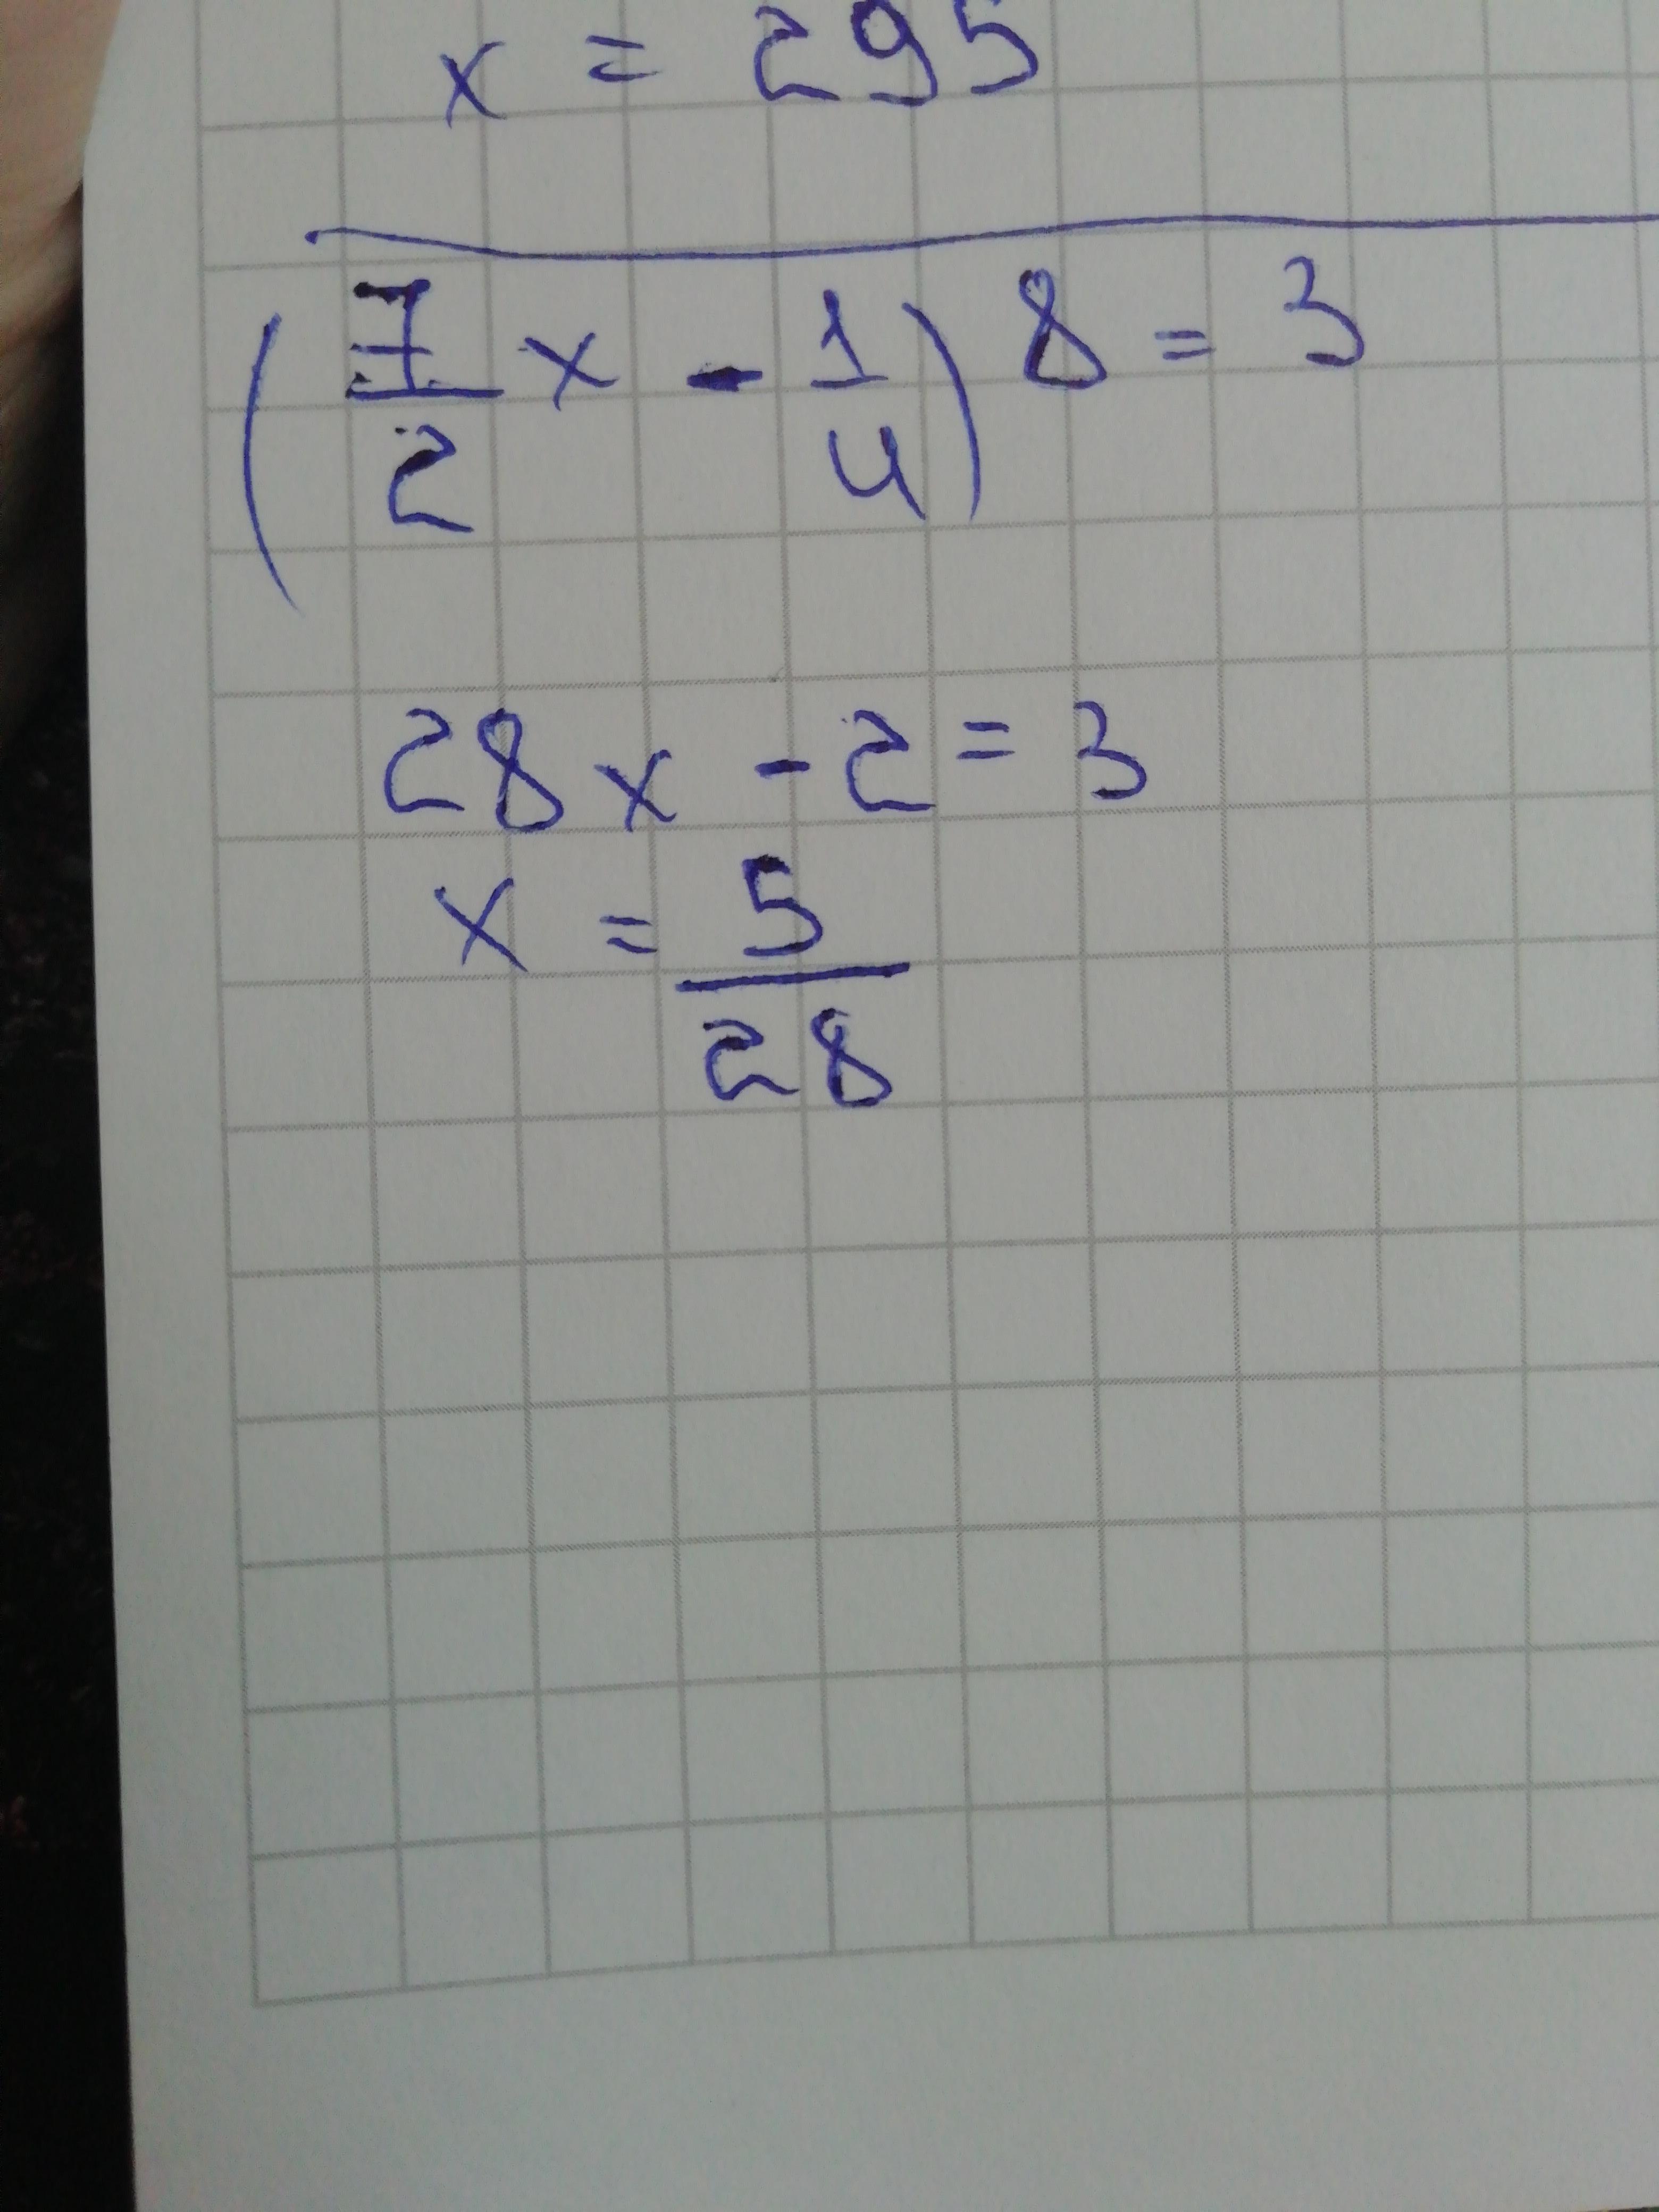 x = 295
(7/2 x - 1/4) 8 = 3
28x - 2 = 3
x = 5/28